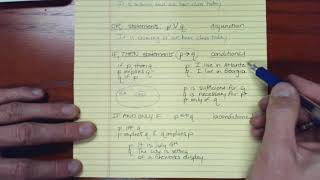 It is raining and we have class today
OR statements p ∨ q disjunction
It is raining or we have class today
IF, THEN statements (p → q) conditional
if p then q p: I live in Atlanta
p implies q q: I live in Georgia
q if p
p is sufficient for q
q is necessary for p
p only if q
IF AND ONLY IF p ↔ q biconditional
p iff q
p implies q & q implies p
p: It is July 4th
q: The city is setting
off a fireworks display